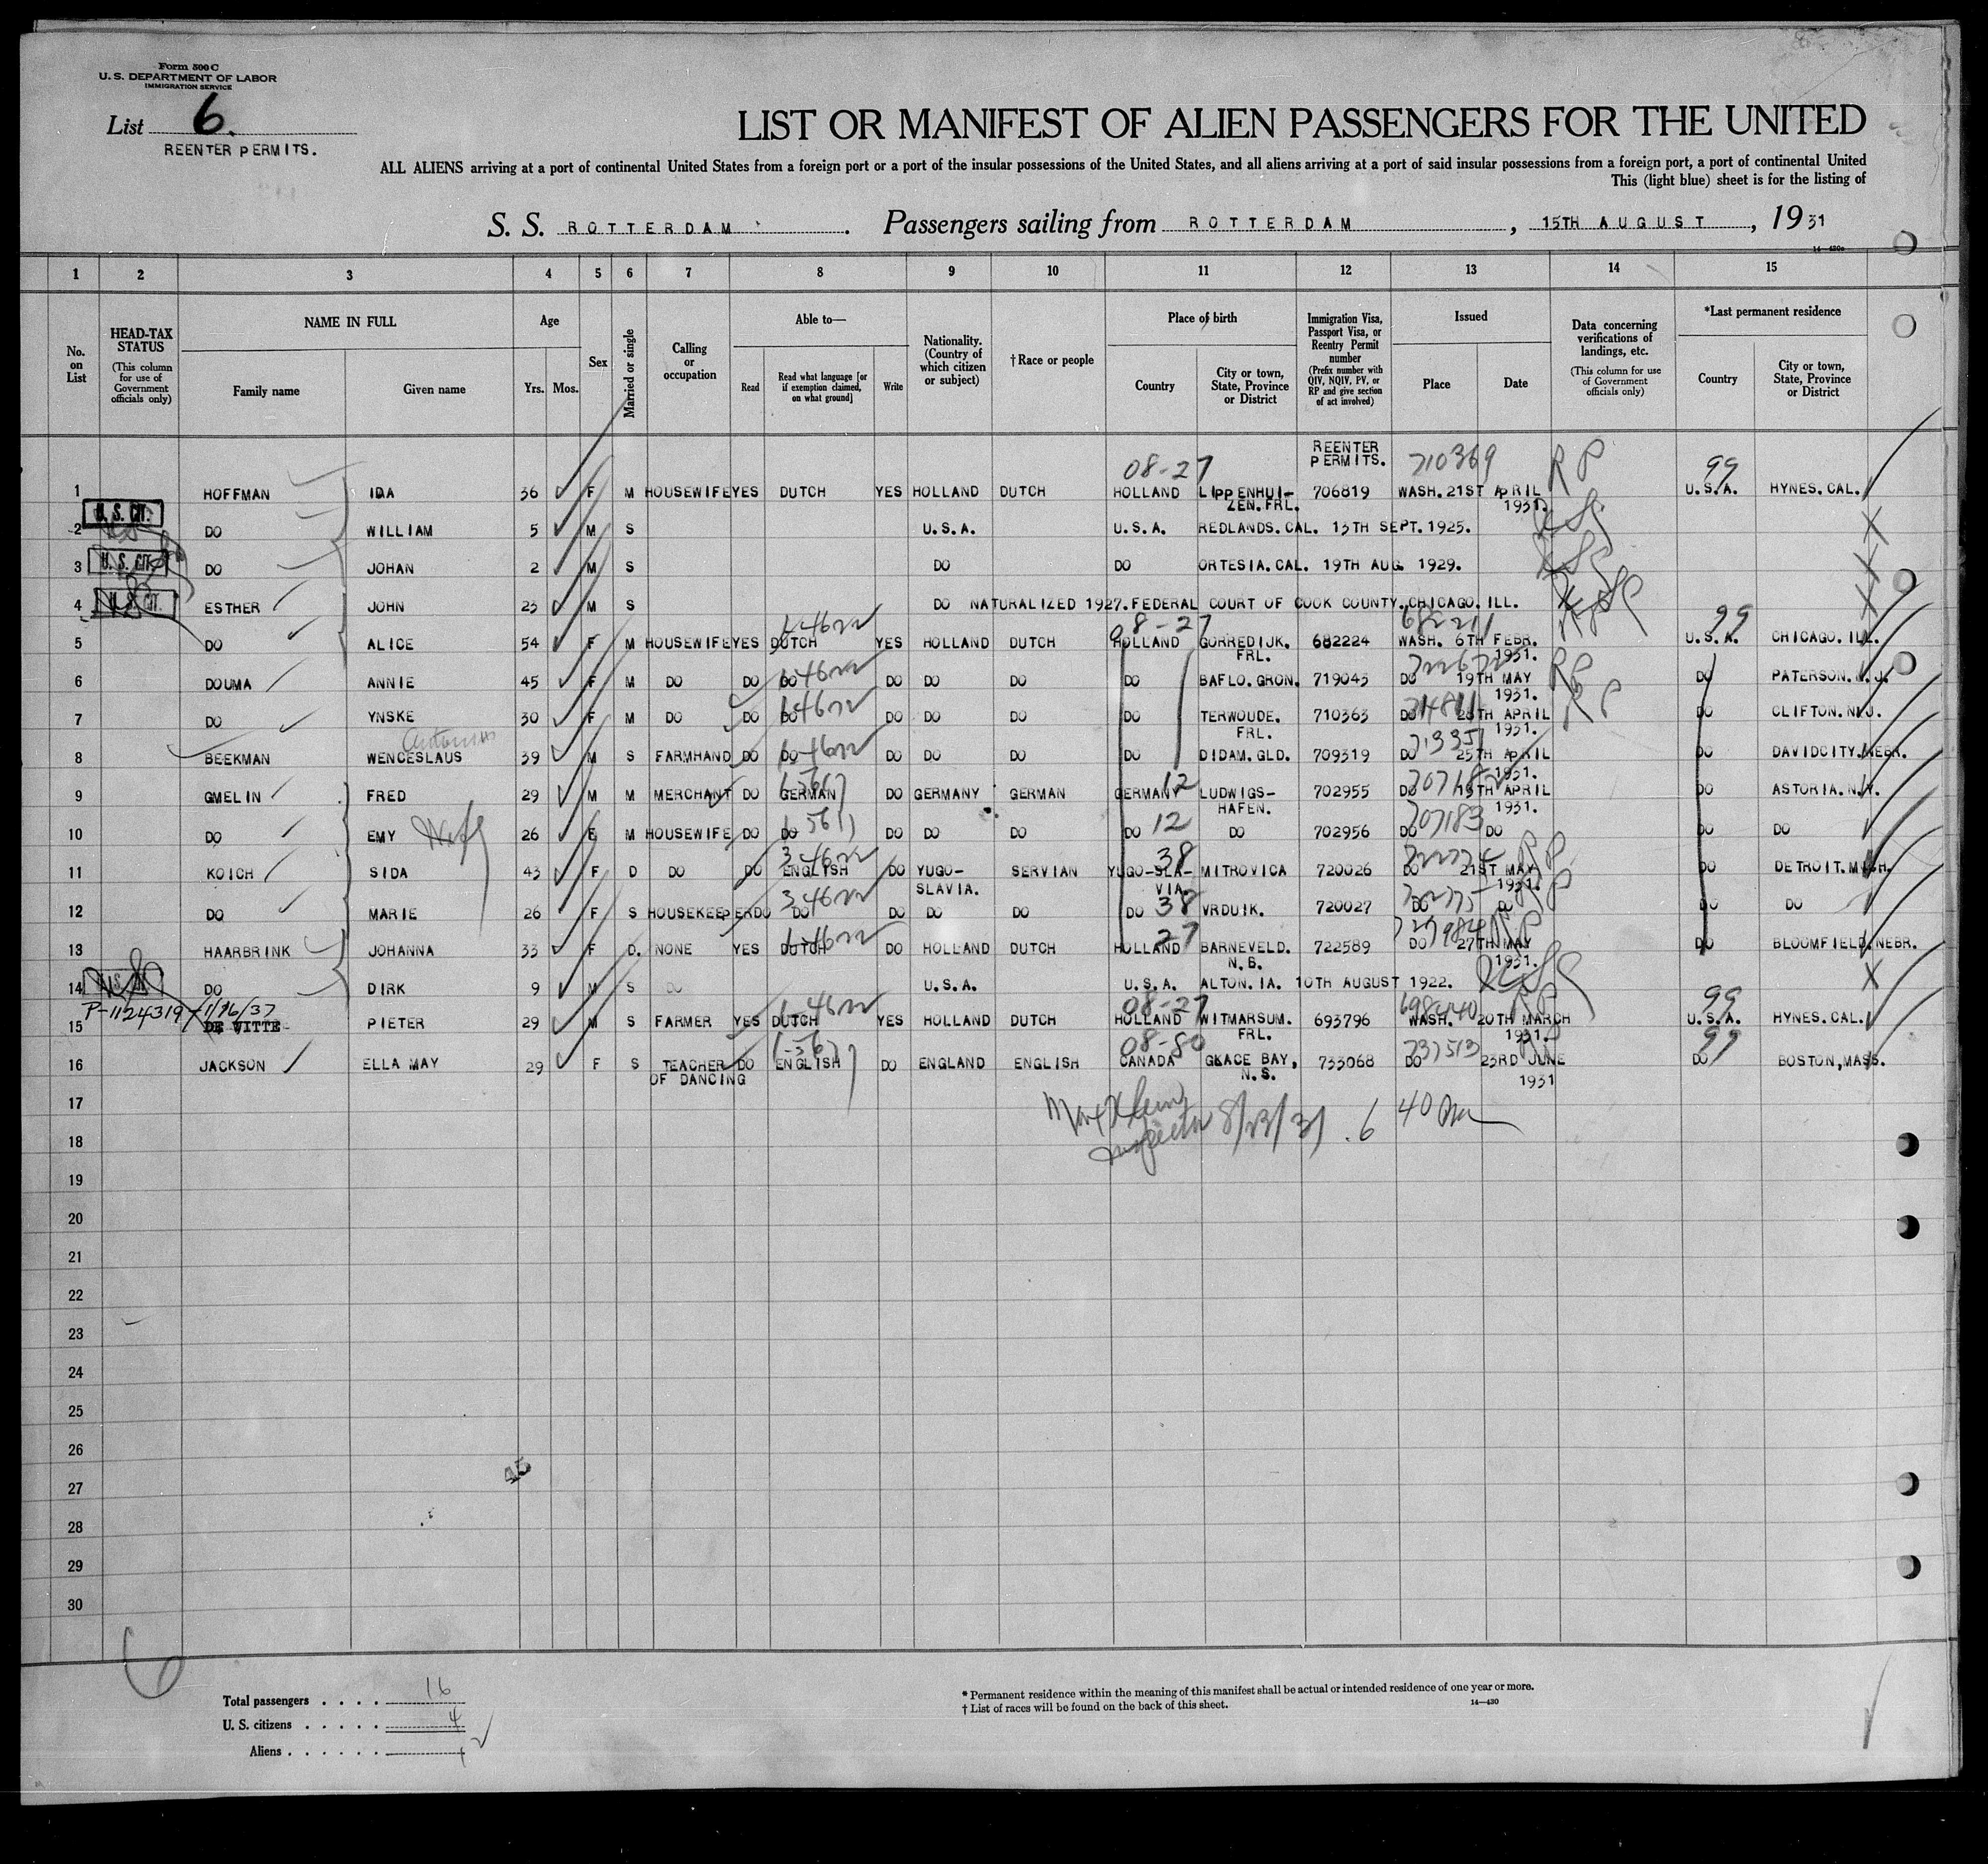 Form 500 C
U. S. DEPARTMENT OF LABOR
IMMIGRATION SERVICE
List 6.
REENTER PERMITS.
LIST OR MANIFEST OF ALIEN PASSENGERS FOR THE UNITED
ALL ALIENS arriving at a port of continental United States from a foreign port or a port of the insular possessions of the United States, and all aliens arriving at a port of said insular possessions from a foreign port, a port of continental United
This (light blue) sheet is for the listing of
S. S. ROTTERDAM. Passengers sailing from ROTTERDAM, 15TH AUGUST, 1931
14—430c
1 2 3 4 5 6 7 8 9 10 11 12 13 14 15
No. on List
HEAD-TAX STATUS
(This column for use of Government officials only)
NAME IN FULL
Family name Given name
Age
Yrs. Mos.
Sex
Married or single
Calling or occupation
Able to—
Read Read what language [or if exemption claimed, on what ground] Write
Nationality. (Country of which citizen or subject)
†Race or people
Place of birth
Country City or town, State, Province or District
Immigration Visa, Passport Visa, or Reentry Permit number
(Prefix number with QIV, NQIV, PV, or RP and give section of act involved)
Issued
Place Date
Data concerning verifications of landings, etc.
(This column for use of Government officials only)
*Last permanent residence
Country City or town, State, Province or District
08-27 REENTER PERMITS. 710369 RP 99
1 HOFFMAN IDA 36 F M HOUSEWIFE YES DUTCH YES HOLLAND DUTCH HOLLAND LIPPENHUI- 706819 WASH. 21ST APRIL U.S.A. HYNES. CAL.
ZEN. FRL. 1931.
U. S. CIT.
2 DO WILLIAM 5 M S U.S.A. U.S.A. REDLANDS. CAL. 13TH SEPT. 1925.
U. S. CIT.
3 DO JOHAN 2 M S DO DO ORTESIA. CAL. 19TH AUG. 1929.
U. S. CIT.
4 ESTHER JOHN 23 M S DO NATURALIZED 1927. FEDERAL COURT OF COOK COUNTY. CHICAGO. ILL.
08-27 99
5 DO ALICE 54 F M HOUSEWIFE YES DUTCH YES HOLLAND DUTCH HOLLAND GORREDIJK. 682224 WASH. 6TH FEBR. U.S.A. CHICAGO. ILL.
FRL. 1931.
6 DOUMA ANNIE 45 F M DO DO DO DO DO DO DO BAFLO. GRON. 719043 DO 19TH MAY RP DO PATERSON. N.J.
1931.
7 DO YNSKE 30 F M DO DO DO DO DO DO DO TERWOUDE. 710363 DO 28TH APRIL RP DO CLIFTON. N.J.
FRL. 1931.
8 BEEKMAN WENCESLAUS 39 M S FARMHAND DO DO DO DO DO DO DIDAM. GLD. 709319 DO 25TH APRIL DO DAVIDCITY. NEBR.
1931.
12
9 GMELIN FRED 29 M M MERCHANT DO GERMAN DO GERMANY GERMAN GERMANY LUDWIGS- 702955 DO 15TH APRIL DO ASTORIA. N.Y.
HAFEN. 1931.
10 DO EMY Wife 26 F M HOUSEWIFE DO DO DO DO DO DO 12 DO 702956 DO 707183 DO DO DO
38
11 KOICH SIDA 43 F D DO DO ENGLISH DO YUGO- SERVIAN YUGO-SLA- MITROVICA 720026 DO 21ST MAY RP DO DETROIT. MICH.
SLAVIA. VIA. 1931.
12 DO MARIE 26 F S HOUSEKEEPER DO DO DO DO DO DO 38 VRDUIK. 720027 DO DO RP DO DO
27
13 HAARBRINK JOHANNA 33 F D. NONE YES DUTCH DO HOLLAND DUTCH HOLLAND BARNEVELD. 722589 DO 27TH MAY RP DO BLOOMFIELD. NEBR.
N.B. 1931.
14 DO DIRK 9 M S DO U.S.A. U.S.A. ALTON. IA. 10TH AUGUST 1922.
P-1124319-1/26/37 08-27 99
15 DE VITTE PIETER 29 M S FARMER YES DUTCH YES HOLLAND DUTCH HOLLAND WITMARSUM. 693796 WASH. 20TH MARCH U.S.A. HYNES. CAL.
FRL. 1931.
08-80 737513 99
16 JACKSON ELLA MAY 29 F S TEACHER DO ENGLISH DO ENGLAND ENGLISH CANADA GLACE BAY, 733068 DO 23RD JUNE DO BOSTON, MASS.
OF DANCING N.S. 1931
17
Inspector 8/23/31 .6 40
18
19
20
21
22
23
24
25
26
27
28
29
30
Total passengers . . . . 16
U. S. citizens . . . . . 4
Aliens . . . . . .
* Permanent residence within the meaning of this manifest shall be actual or intended residence of one year or more.
† List of races will be found on the back of this sheet.
14—430